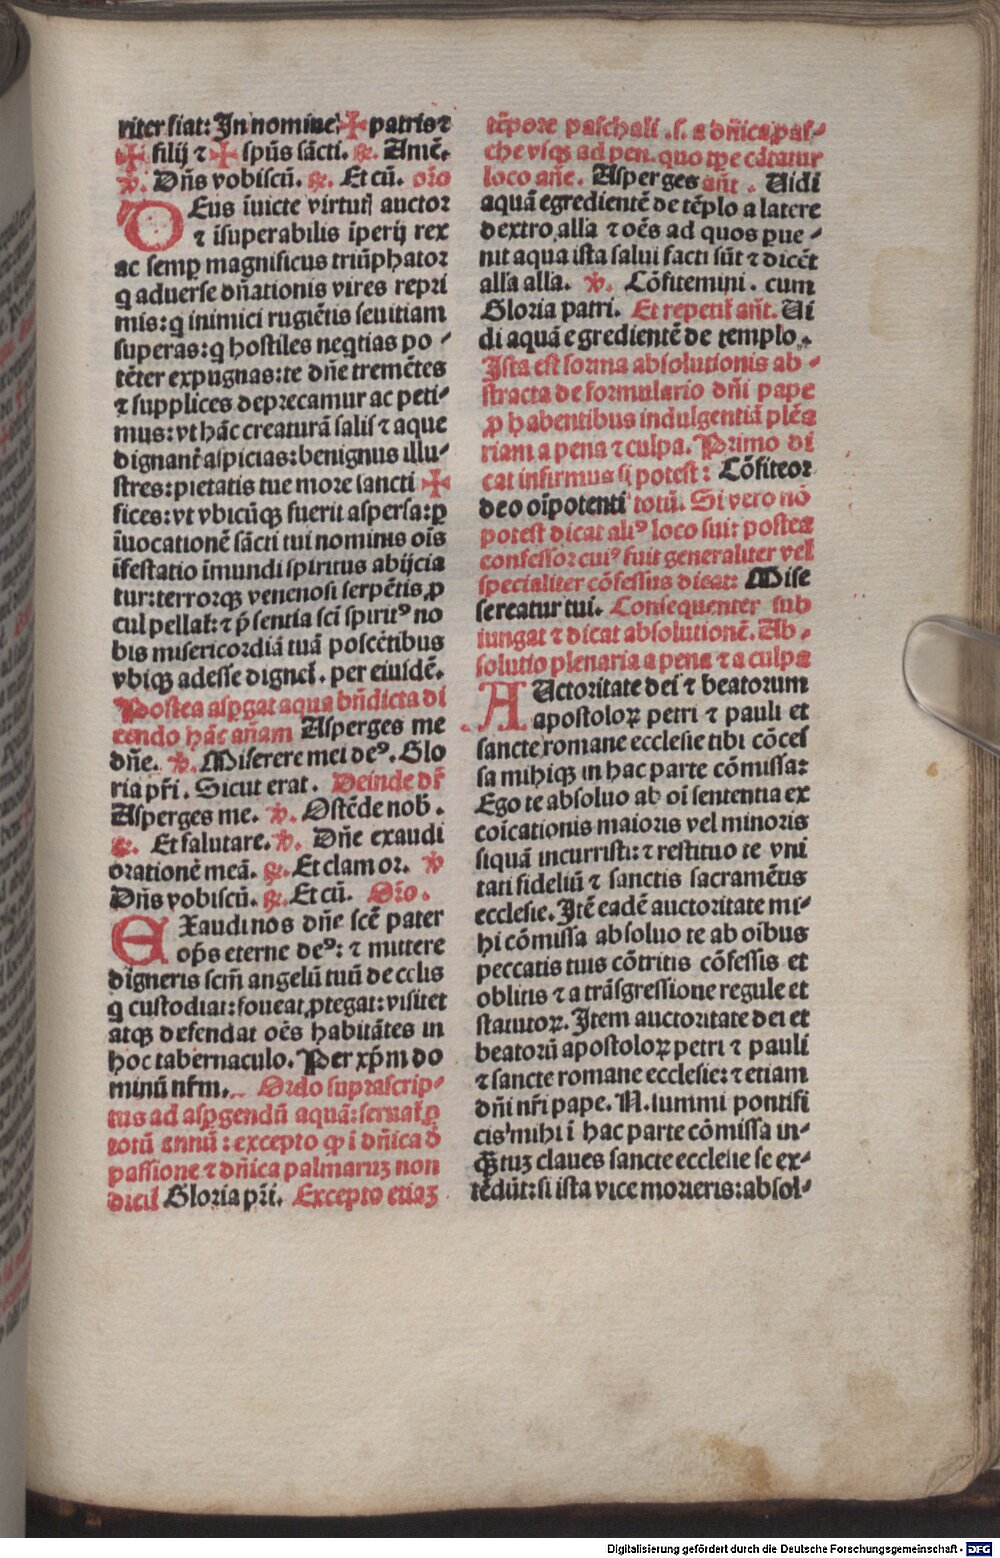 riter fiat: In nomine ✠ patris ⁊
✠ filij ⁊ ✠ spūs sāct́i. ℟. Amē.
℣. Dn̄s vobiscū. ℟. Et cū. oro
DEus īuicte virtutꝭ auctor
⁊ īsuperabilis īperij rex
ac semꝑ magnificus triūphator
q̇ aduerse dn̄ationis vires repri
mis: q̇ inimici rugiētis seuitiam
superas: q̇ hostiles neqtias po⸗
tēter expugnas: te dn̄e tremētes
⁊ supplices deprecamur ac peti⸗
mus: vt hāc creaturā salis ⁊ aque
dignant̄ aspicias: benignus illu⸗
stres: pietatis tue more sancti ✠
fices: vt vbicūqꝫ fuerit aspersa: ꝑ
īuocationē sācti tui nominis oīs
īfestatio īmundi spiritus abijcia
tur: terrorqꝫ venenosi serpētis ꝓ
cul pellat̄: ⁊ p̄sentia sci spiritꝰ no
bis misericordiā tuā poscētibus
vbiqꝫ adesse dignet̄. per eiusdē.
Postea aspgat aqua bn̄dicta di
cendo hāc an̄am Asperges me
dn̄e. ℣. Miserere mei deꝰ. Glo
ria pr̄i. Sicut erat. Deinde dr̄
Asperges me. ℣. Ostēde nob̄.
℟. Et salutare. ℣. Dn̄e exaudi
orationē meā. ℟. Et clamor. ℣
Dn̄s vobiscū. ℟. Et cū. Oro.
EXaudi nos dn̄e scē pater
op̄s eterne deꝰ: ⁊ mittere
digneris scm̄ angelū tuū de celis
q̇ custodiat: foueat ꝓtegat: visitet
atqꝫ defendat oēs habitātes in
hoc tabernaculo. Per xp̄m do
minū nr̄m. Ordo suprascrip⸗
tus ad aspgendū aquā: seruat̄ ꝑ
totū annū: excepto ꝙ ī dn̄ica d̄
passione ⁊ dn̄ica palmaruꝫ non
dicit̄ Gloria pr̄i. Excepto etiaꝫ
tēpore paschali .s. a dn̄ica pas⸗
che vsqꝫ ad pen. quo tꝑe cātatur
loco ane. Asperges an̄t. Uidi
aquā egredientē de tēplo a latere
dextro alla ⁊ oēs ad quos ꝑue⸗
nit aqua ista salui facti sūt ⁊ dicēt
alla alla. ℣. Cōfitemini. cum
Gloria patri. Et repetit̄ an̄t. Ui
di aquā egredientē de templo.
Ista est forma absolutionis ab⸗
stracta de formulario dn̄i pape
ꝓ habentibus indulgentiā plēa
riam a pena ⁊ culpa. Primo di
cat infirmus si potest: Cōfiteor
deo oīpotenti totū. Si vero nō
potest dicat aliꝰ loco sui: postea
confessor cuiꝰ fuit generaliter vel
specialiter cōfessus dicat: Mise
sereatur tui. Consequenter sub
iungat ⁊ dicat absolutionē. Ab⸗
solutio plenaria a pena ⁊ a culpa
AUctoritate dei ⁊ beatorum
apostoloꝝ petri ⁊ pauli et
sancte romane ecclesie tibi cōces
sa mihiqꝫ in hac parte cōmissa:
Ego te absoluo ab oī sententia ex
coīcationis maioris vel minoris
siquā incurristi: ⁊ restituo te vni
tati fideliū ⁊ sanctis sacramētis
ecclesie. Itē eadē auctoritate mi⸗
hi cōmissa absoluo te ab oībus
peccatis tuis cōtritis cōfessis et
oblitis ⁊ a trāsgressione regule et
statutoꝝ. Item auctoritate dei et
beatorū apostoloꝝ petri ⁊ pauli
⁊ sancte romane ecclesie: ⁊ etiam
dn̄i nr̄i pape. N. summi pontifi
cis mihi ī hac parte cōmissa in⸗
q̄tuꝫ claues sancte ecclesie se ex⸗
tēdūt: si ista vice morieris: absol⸗
Digitalisierung gefördert durch die Deutsche Forschungsgemeinschaft - DFG